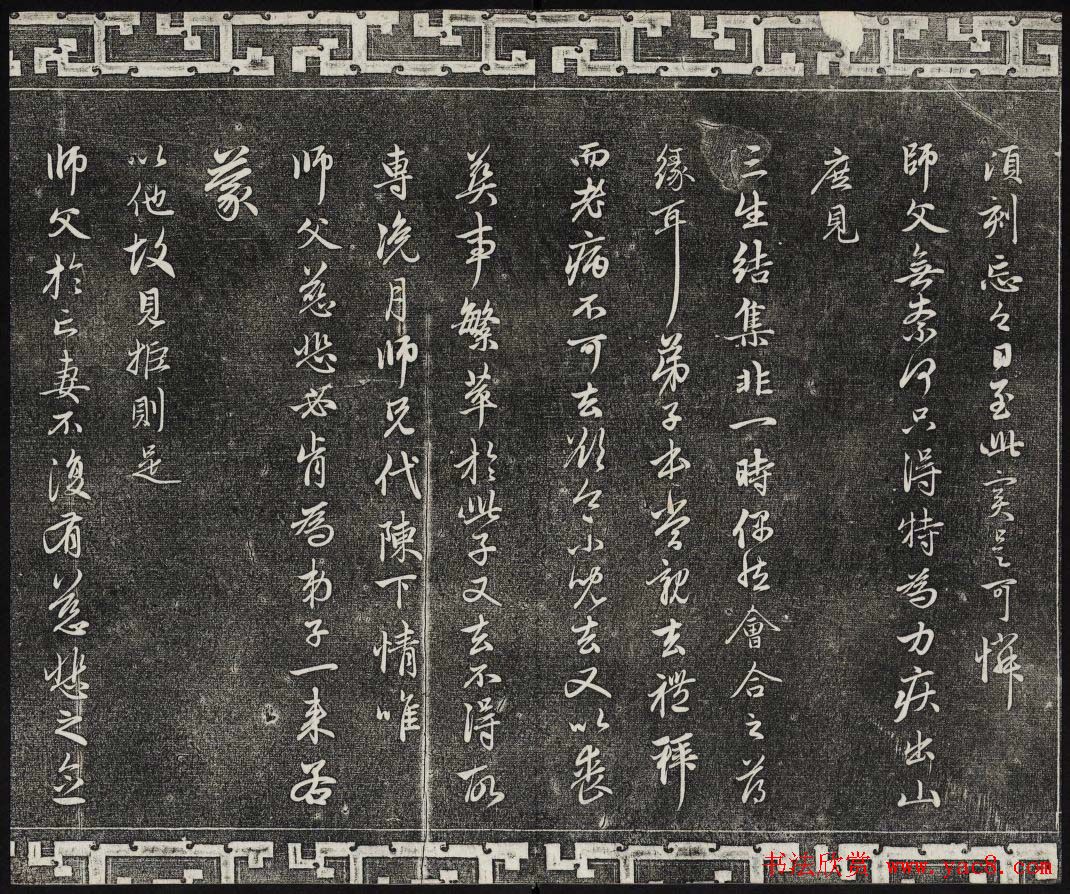 須刻忘今日至此實是可憐
師父無奈何只得特為力疾出山
庶見
三生結集非一時偶然會合之薄
緣耳弟子本當親去禮拜
而老病不可去欲令小兒去又以喪
葬事繁萃於此子又去不得故
專浼月師兄代陳下情唯
師父慈悲必肯為弟子一來若
蒙
以他故見拒則是
師父於亡妻不復有慈悲之念
书法欣赏 www.yac8.com